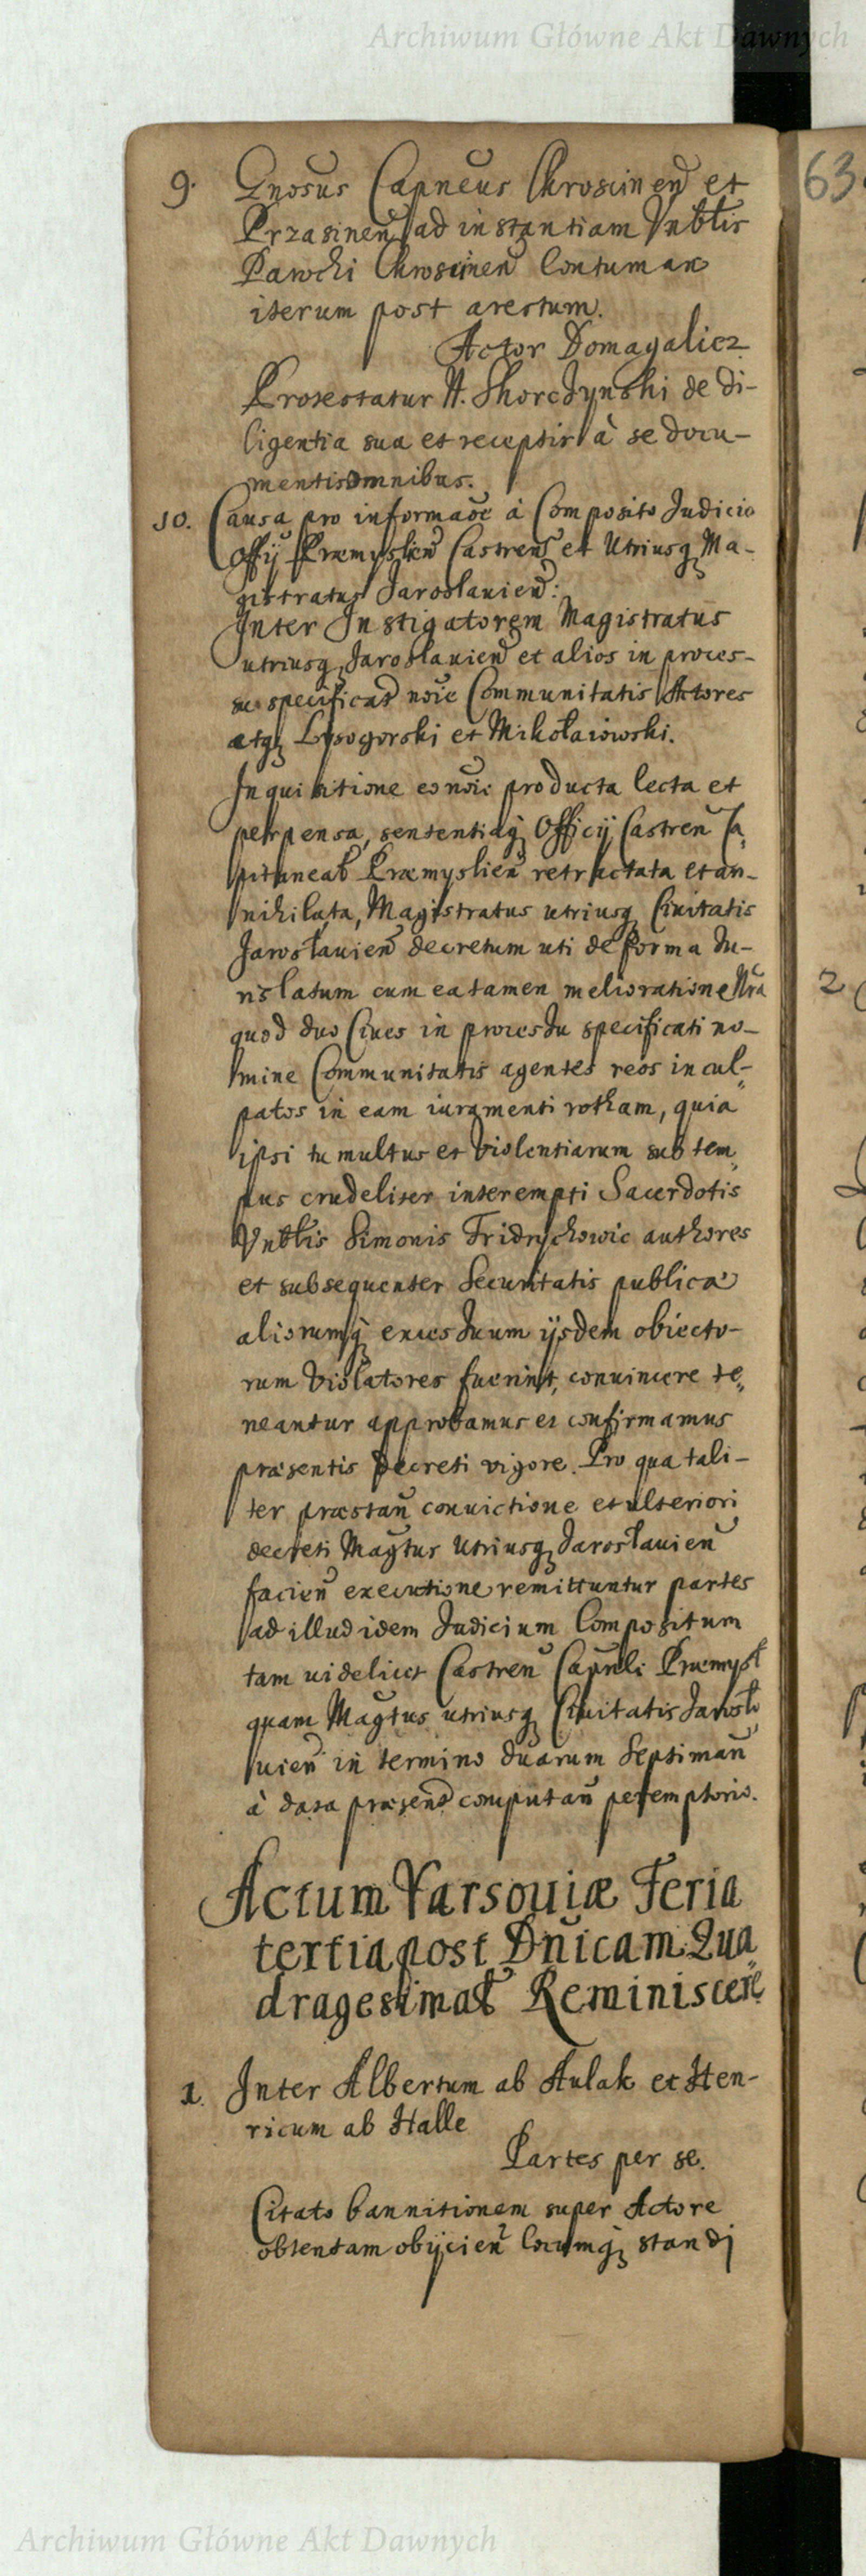 Archiwum Główne Akt Dawnych
63
9. Gnosus Capneus Chroscinen et
Przasinen ad instantiam Vnblis
Parochi Chroscinen Contumax
iterum post arestum.
Actor Domagalicz
Protestatur N. Skorczynski de di-
ligentia sua et receptis à se docu-
mentis omnibus.
10. Causa pro informaõe à Composito Judicio
Offy Præmyslien Castren et Utriusq Ma-
gistratus Jaroslauien:
Inter Instigatorem Magistratus
utriusq Jaroslauien et alios in proces-
su specificat noie Communitatis Actores
atq Lysogorski et Mikołaiowski.
Inquisitione eo noie producta lecta et
perpensa, sententiaq Officij Castren Ca
pitaneal Præmyslien retractata et an-
nihilata, Magistratus utriusq Ciuitatis
Jarosłauien decretum uti de forma Ju-
ris latum cum ea tamen melioratione Nra
quod duo Ciues in processu specificati no-
mine Communitatis agentes reos incul-
patos in eam iuramenti rotham, quia
ipsi tumultus et violentiarum sub tem
pus crudeliter interempti Sacerdotis
Vnblis Simonis Fridrychowic authores
et subsequenter Securitatis publicæ
aliorumq excessuum ijsdem obiecto-
rum Violatores fuerint, conuincere te
neantur approbamus et confirmamus
præsentis decreti vigore. Pro qua tali-
ter præstan conuictione et ulteriori
decreti Magtus Utriusq Jarosłauien
facien executione remittuntur partes
ad illud idem Judicium Compositum
tam uidelicet Castren Capnli Præmysł
quam Magtus utriusq Ciuitatis Jarosło
uien in termino duarum Septiman
à data præsent computan peremptorio.
Actum Varsouiæ Feria
tertia post Dnicam Qua
dragesimal Reminiscere
1. Inter Albertum ab Aulak et Hen-
ricum ab Halle
Partes per se.
Citato bannitionem super Actore
obtentam obijcien locumq standi
2
Archiwum Główne Akt Dawnych